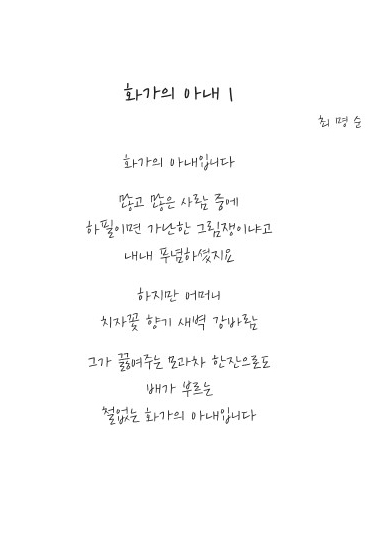 화가의 아내 1
최명순
화가의 아내입니다
많고 많은 사람 중에
하필이면 가난한 그림쟁이냐고
내내 푸념하셨지요
하지만 어머니
치자꽃 향기 새벽 강바람
그가 끓여주는 모과차 한잔으로도
배가 부르는
철없는 화가의 아내입니다